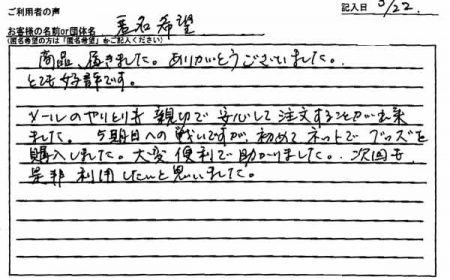 ご利用者の声
記入日 5/22.
お客様の名前or団体名 匿名希望
(匿名希望の方は「匿名希望」をご記入ください)
商品、届きました。ありがとうございました。
とても好評です。
メールのやりとりも親切で安心して注文することが出来
ました。 初めてネットでグッズを
購入しました。大変便利で助かりました。次回も
是非利用したいと思いました。